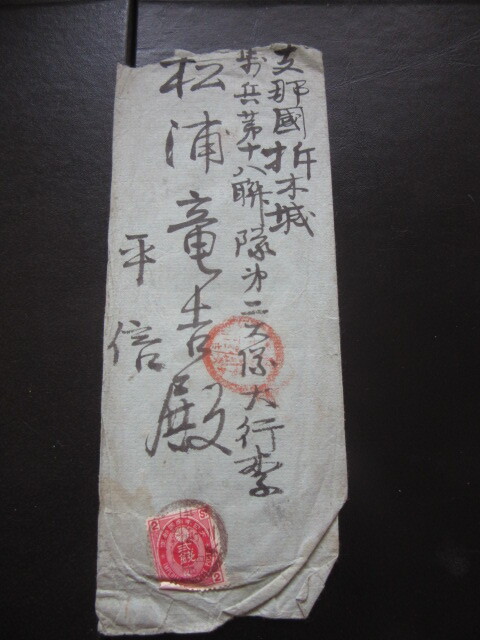 支那國析木城
歩兵第十八聯隊第二大隊大行李
松浦竜吉殿
平信